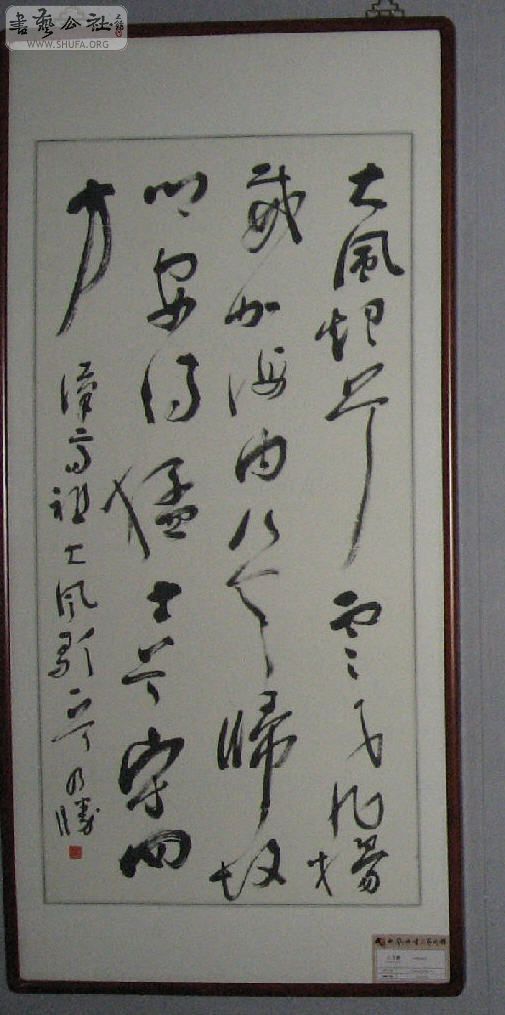 書藝公社
WWW.SHUFA.ORG
大風起兮雲飛揚
威加海内兮歸故
鄉安得猛士兮守四
方
漢高祖大風歌 乃勝